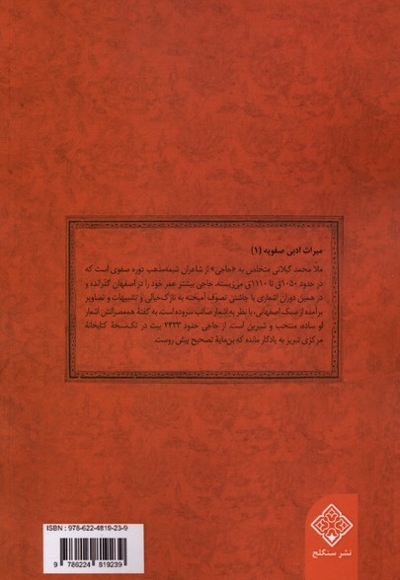 میراث ادبی صفویه (۱)
ملّا محمد گیلانی متخلص به «حاجی» از شاعران شیعه‌مذهب دوره صفوی است که
در حدود ۱۰۵۰ق تا ۱۱۱۰ق می‌زیسته. حاجی بیشتر عمر خود را در اصفهان گذرانده و
در همین دوران اشعاری با چاشنی تصوف آمیخته به نازک‌خیالی و تشبیهات و تصاویر
برآمده از سبک اصفهانی، با نظر به اشعار صائب سروده است. به گفتهٔ همعصرانش اشعار
او ساده، منتخب و شیرین است. از حاجی حدود ۲۷۳۳ بیت در تک‌نسخهٔ کتابخانهٔ
مرکزی تبریز به یادگار مانده که بن‌مایهٔ تصحیح پیش روست.
ISBN : 978-622-4819-23-9
9 786224 819239
نشر سنگلج